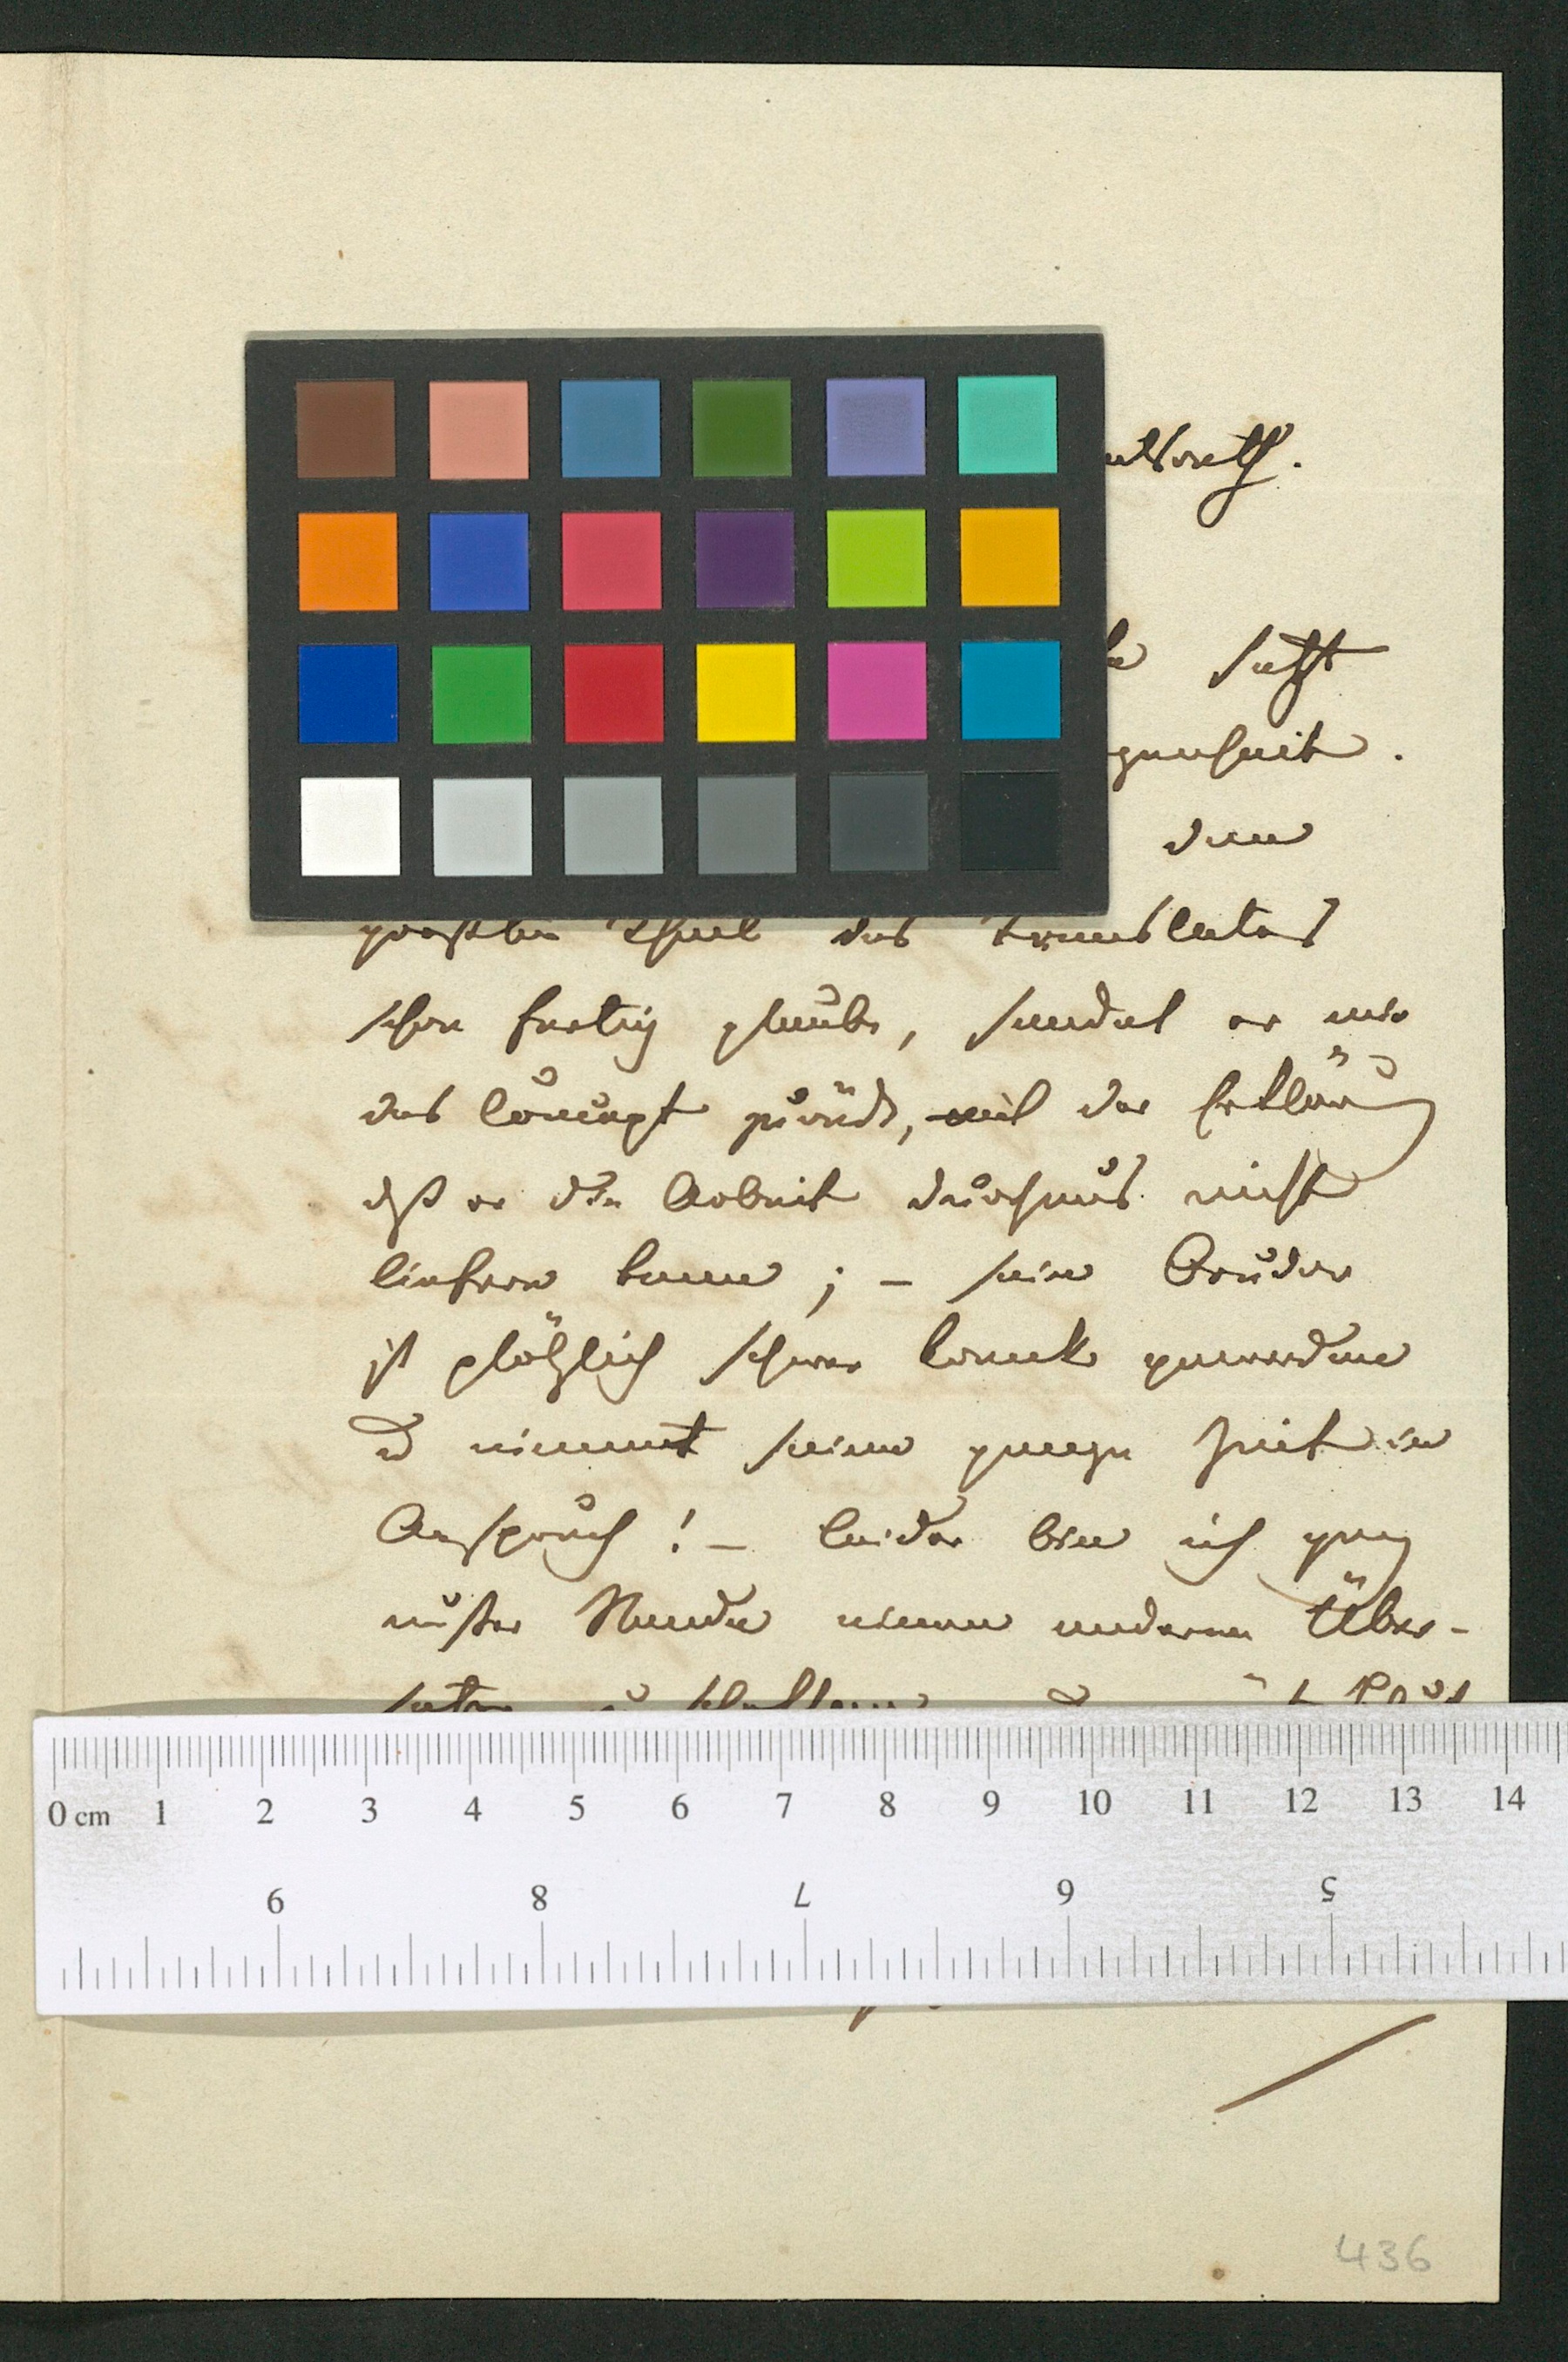 setzt
genheit.
den
größten Theil des Translates
schon fertig glaubte, sendet er mir
das Concept zurück, mit der Erklärung
dß er die Arbeit durchaus nicht
liefern kann; – sein Bruder
ist plötzlich schwer krank geworden
u nimmt seine ganze Zeit in
Anspruch! – leider bin ich ganz
außer Stande einen anderen Über-
0 cm 1 2 3 4 5 6 7 8 9 10 11 12 13 14
9 8 7 6 5
436